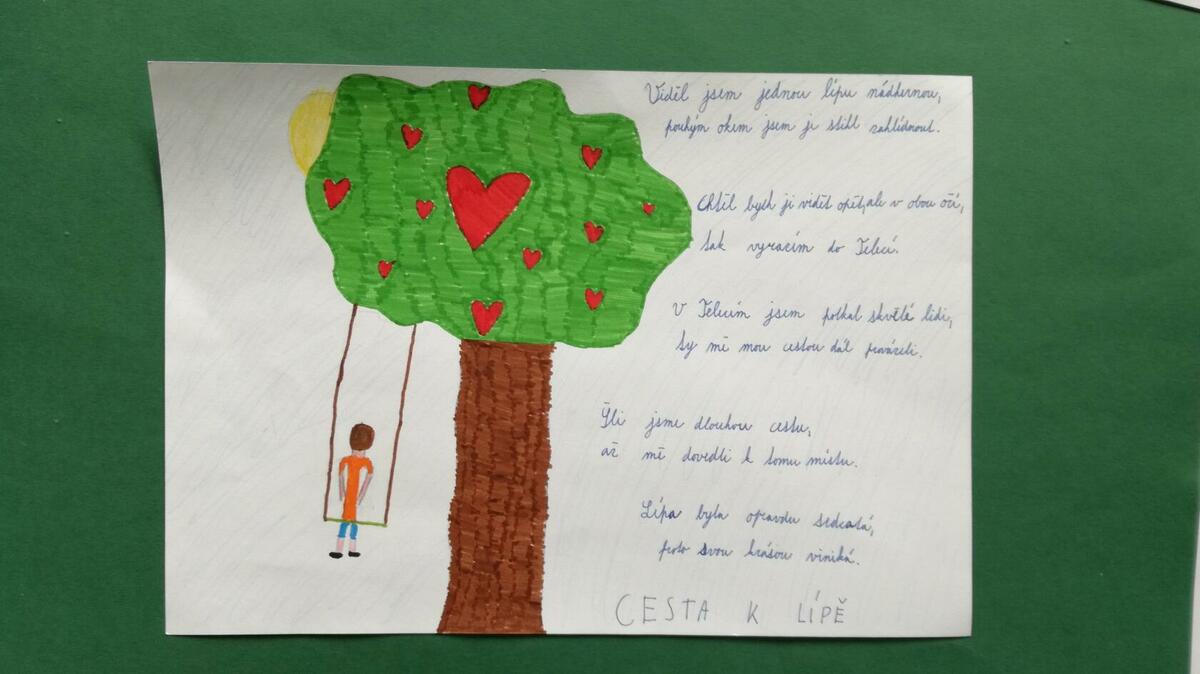 Viděl jsem jednou lípu nádhernou,
pouhým okem jsem ji stihl zahlídnout.
Chtěl bych ji vidět opět, ale v obou očí,
tak vyrazím do Telecí.
V Telecím jsem potkal skvělé lidi,
ty mě mou cestou dál provázeli.
Šli jsme dlouhou cestu,
až mě dovedli k tomu místu.
Lípa byla opravdu srdcatá,
proto svou krásou viniká.
CESTA K LÍPĚ